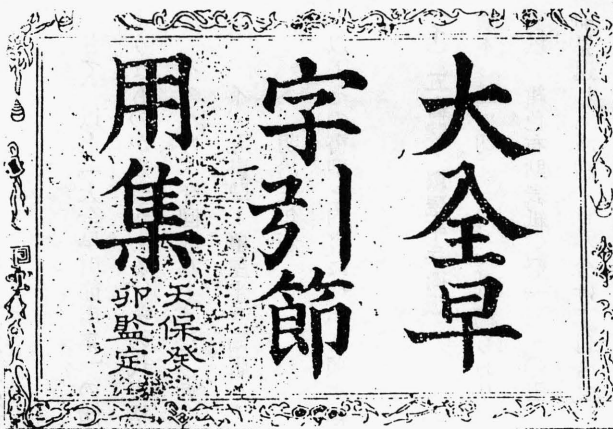 大全早
字引節
用集
天保癸
卯監定